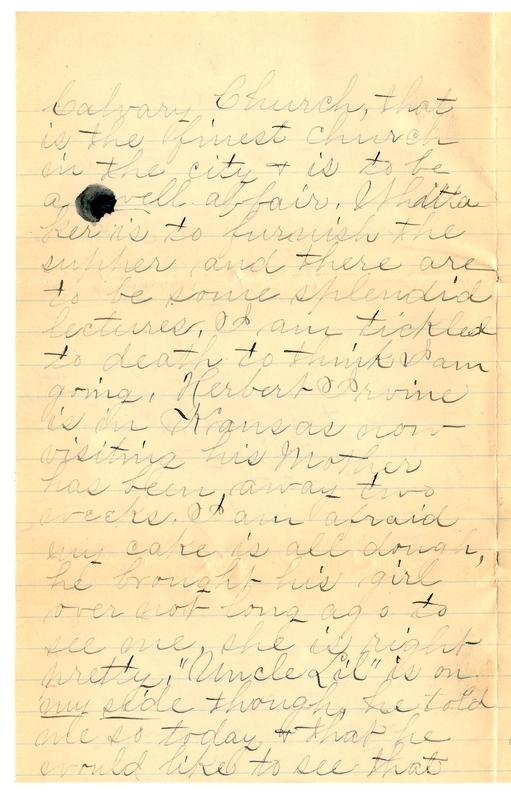 Calvary Church, that
is the finest church
in the city & is to be
a well affair. Whitta
ker is to furnish the
supper and there are
to be some splendid
lectures. I am tickled
to death to think I am
going. Herbert Irvine
is in Kansas now
visiting his Mother
has been away two
weeks. I am afraid
my cake is all dough,
he brought his girl
over not long ago to
see me, she is right
pretty, "Uncle Lil" is on
my side though, he told
me so today & that he
would like to see that